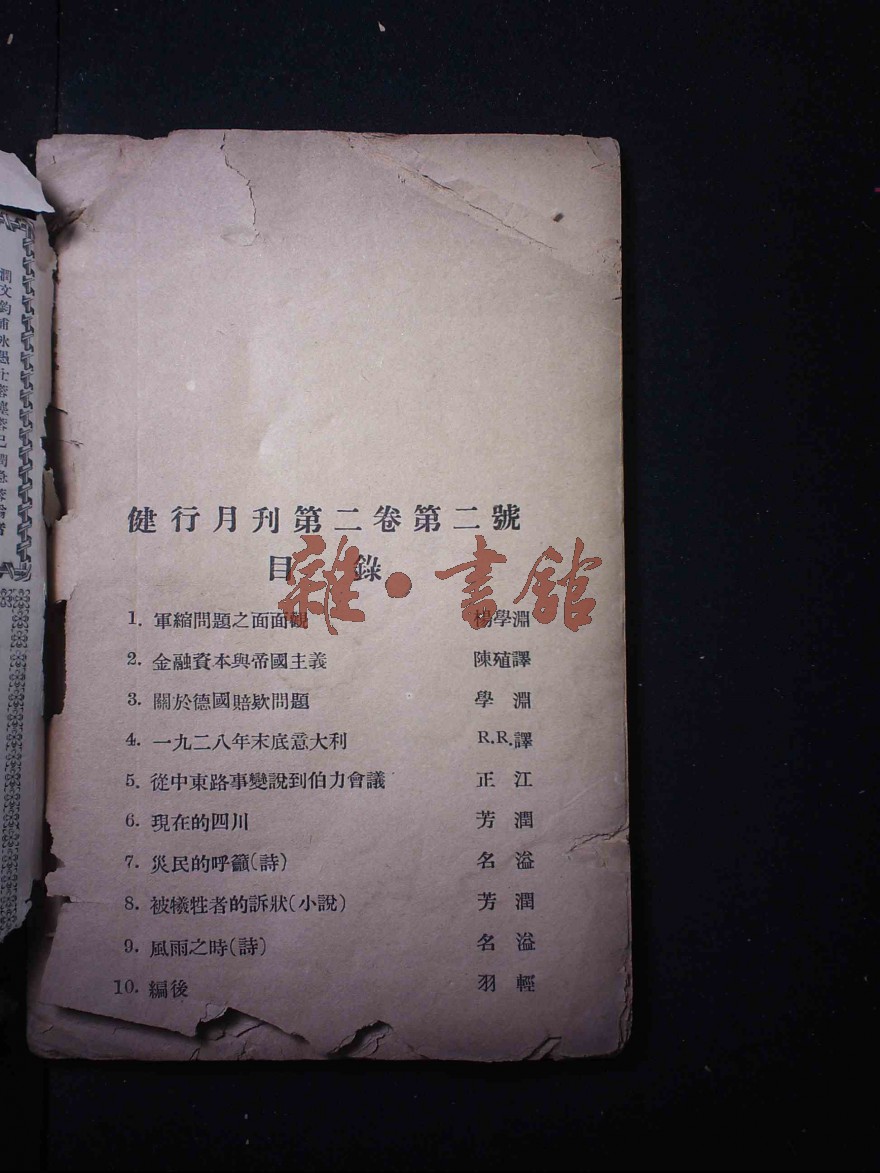 健行月刊第二卷第二號
目錄
雜·書館
1. 軍縮問題之面面觀 楊學淵
2. 金融資本與帝國主義 陳殖譯
3. 關於德國賠欵問題 學淵
4. 一九二八年末底意大利 R.R.譯
5. 從中東路事變說到伯力會議 正江
6. 現在的四川 芳潤
7. 災民的呼籲(詩) 名溢
8. 被犧牲者的訴狀(小說) 芳潤
9. 風雨之時(詩) 名溢
10. 編後 羽輕